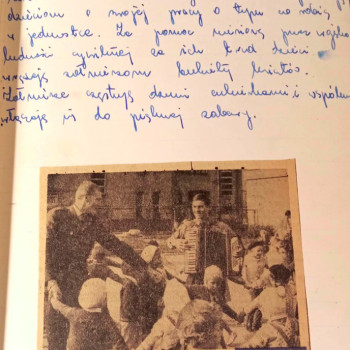 dzieciom o swojej pracy o tym co robią
w jednostce. Za pomoc niesioną przez wojsko
ludności cywilnej za ich trud dzieci
wręczają żołnierzom bukiety kwiatów.
Żołnierze częstują dzieci cukierkami i wspólnie
włączają się do pięknej zabawy.